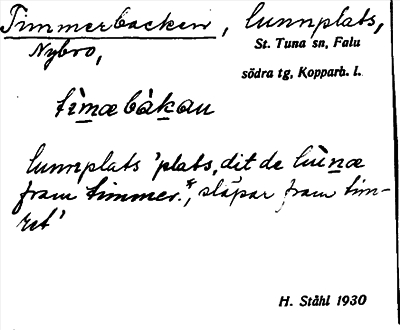 Timmerbacken, lunnplats,
Nybro, St. Tuna sn, Falu
södra tg, Kopparb. l.
tìmæbàkan
lunnplats 'plats, dit de lùnæ
fram timmer.*, släpar fram tim-
ret'
H. Ståhl 1930